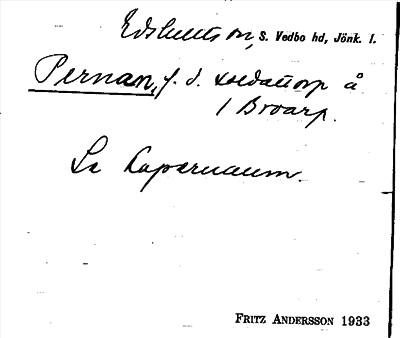 Edshults sn, S. Vedbo hd, Jönk. l.
Pernan, f. d. soldattorp å
/ Broarp.
Se Kapernaum.
FRITZ ANDERSSON 1933